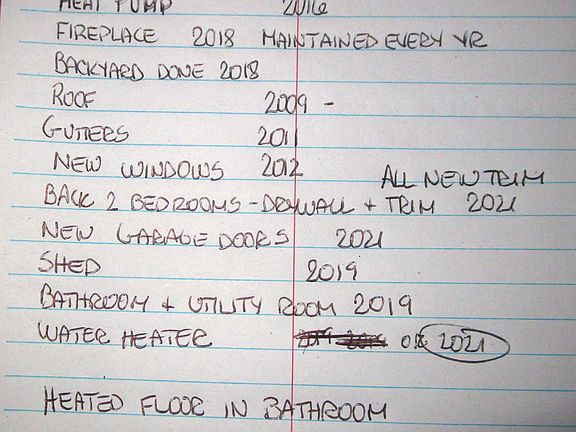 HEAT PUMP 2016
FIREPLACE 2018 MAINTAINED EVERY YR
BACKYARD DONE 2018
ROOF 2009 -
GUTTERS 2011
NEW WINDOWS 2012 ALL NEW TRIM
BACK 2 BEDROOMS - DRYWALL + TRIM 2021
NEW GARAGE DOORS 2021
SHED 2019
BATHROOM + UTILITY ROOM 2019
WATER HEATER OR 2021
HEATED FLOOR IN BATHROOM